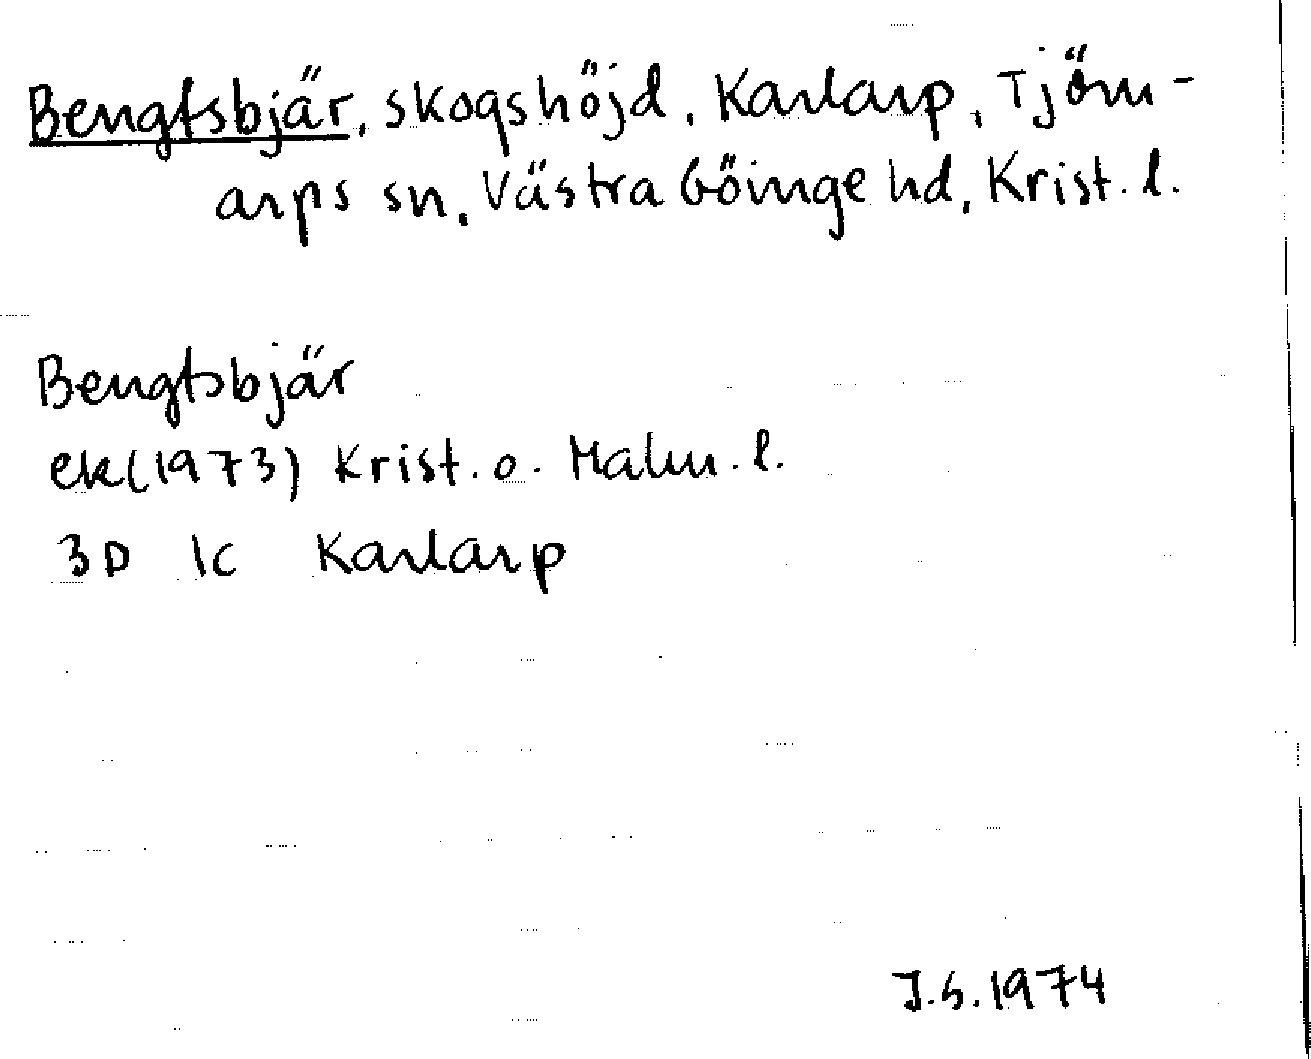 Bengtsbjär, skogshöjd, Karlarp, Tjörn-
arps sn, Västra Göinge hd, Krist. l.
Bengtsbjär
ek(1973) Krist. o. Malm. l.
3D 1c Karlarp
J.S.1974